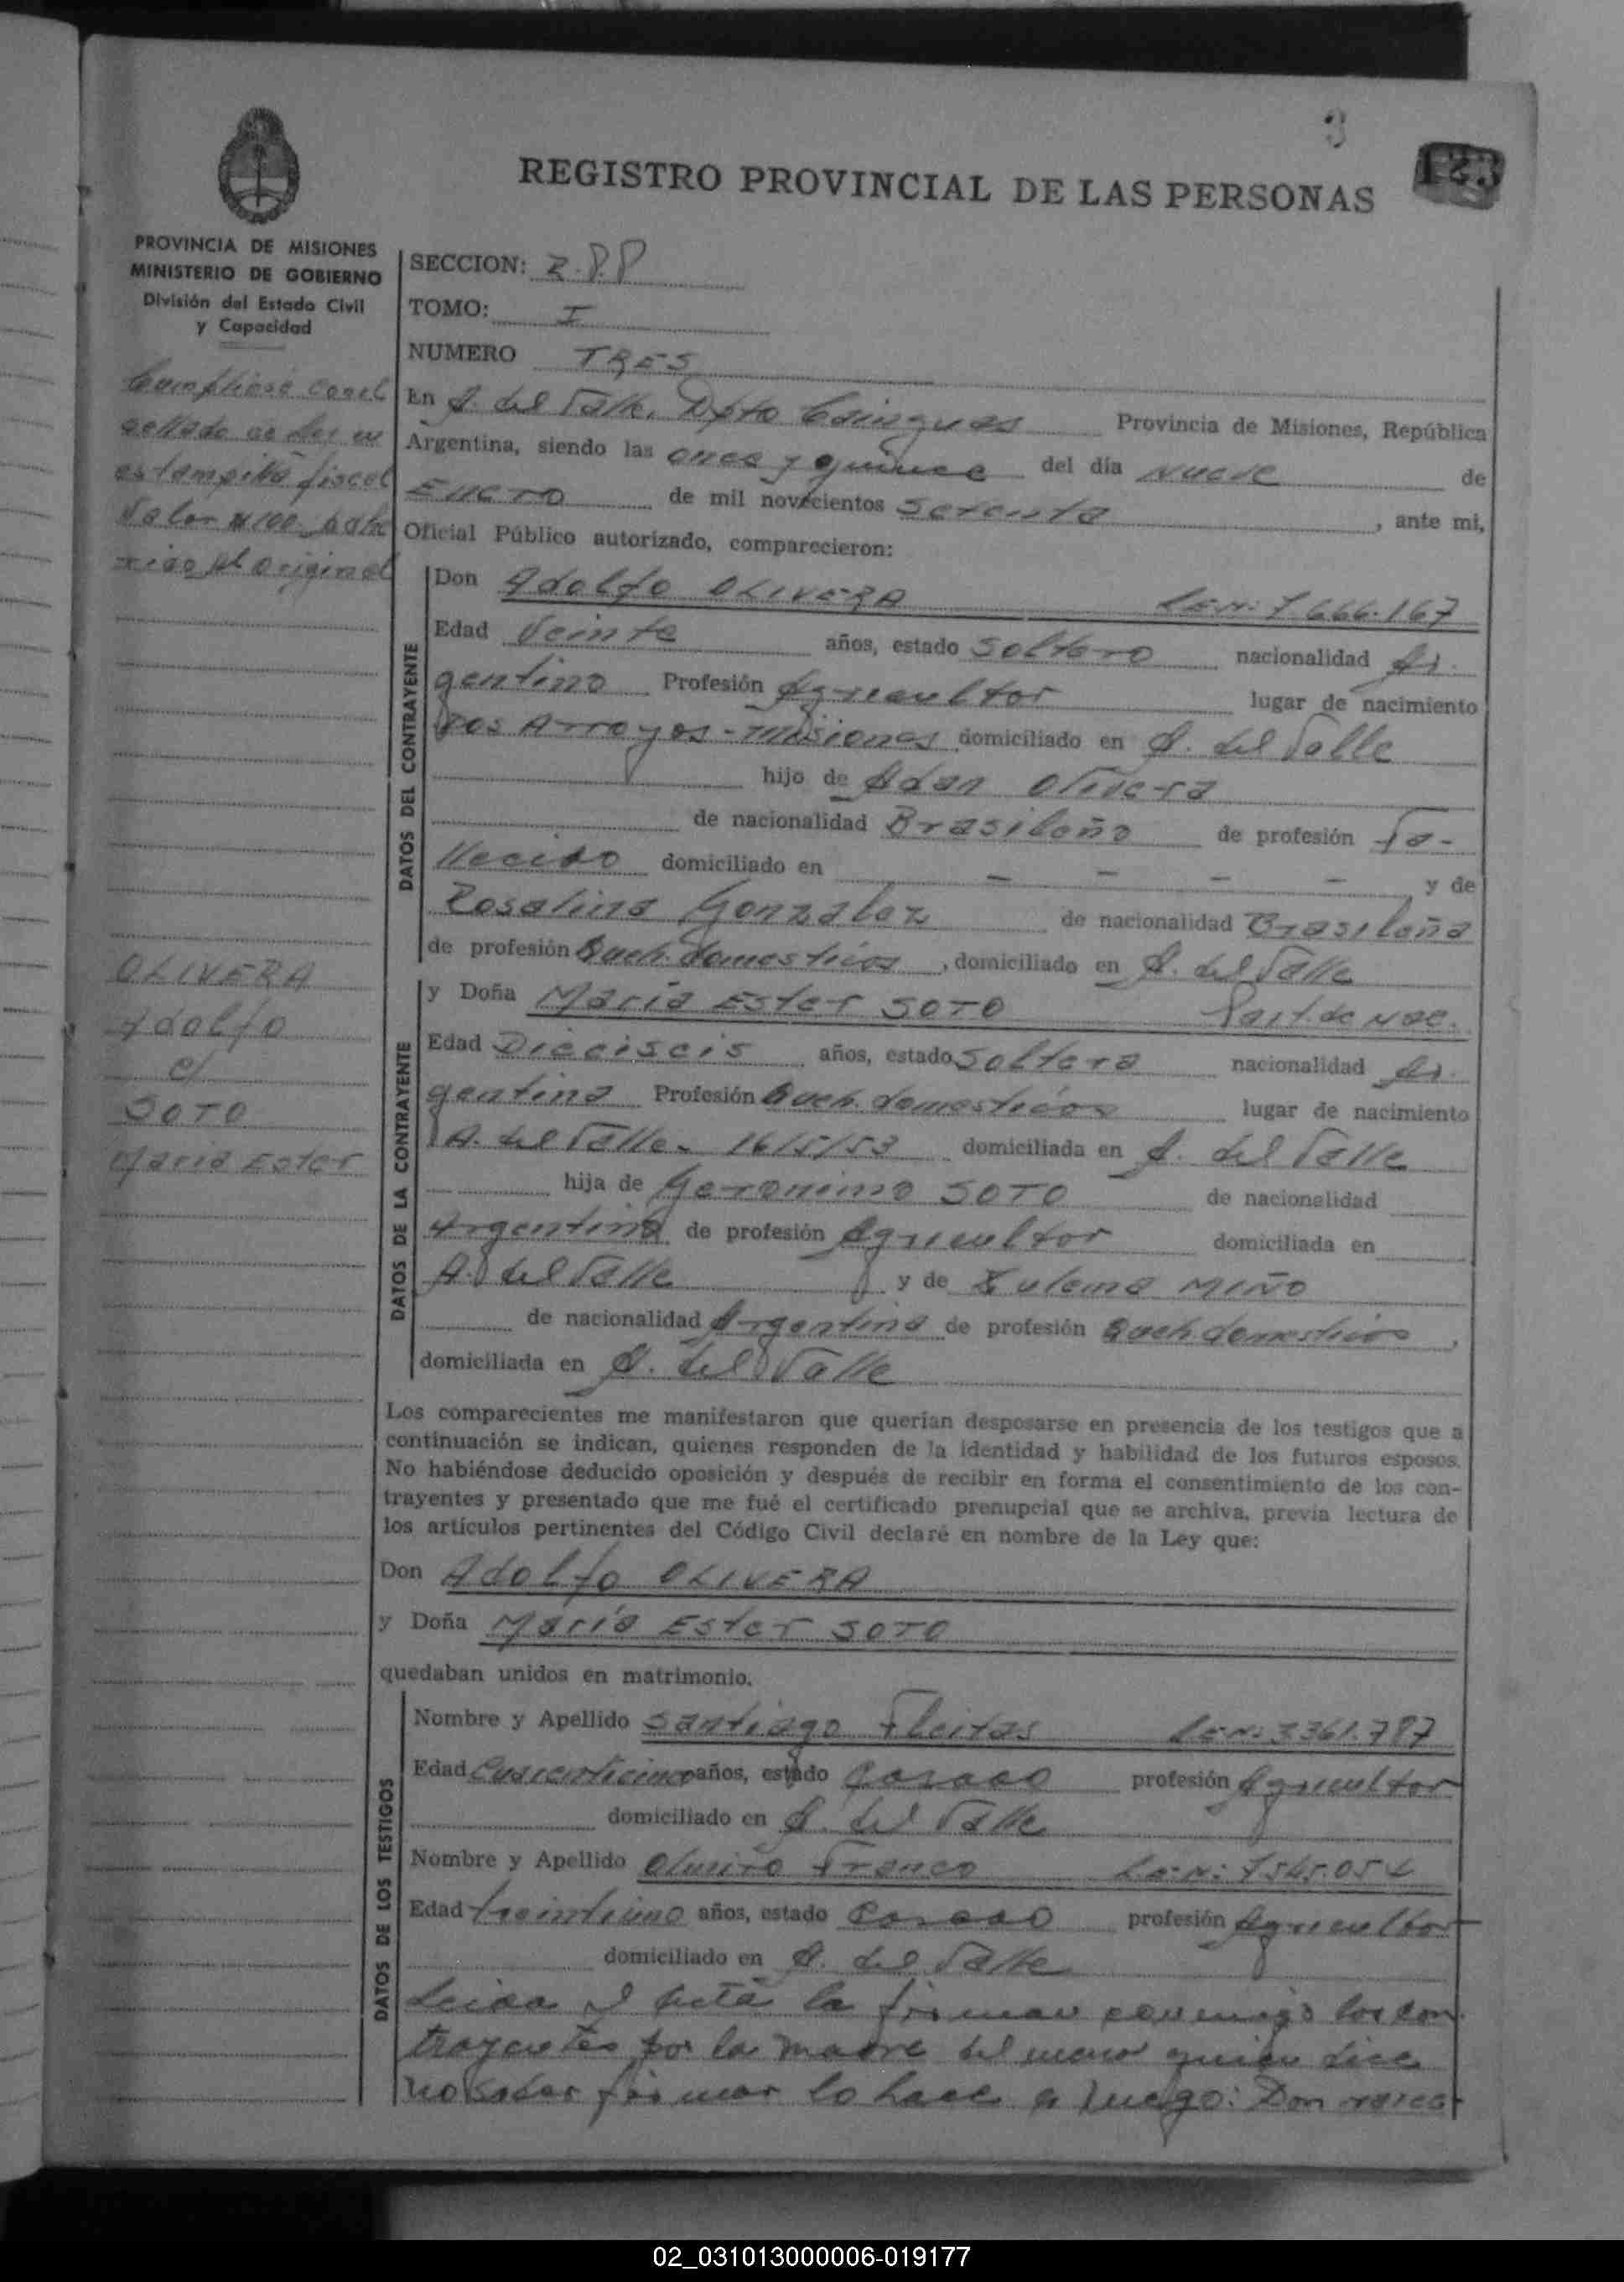 3
123
REGISTRO PROVINCIAL DE LAS PERSONAS
PROVINCIA DE MISIONES
MINISTERIO DE GOBIERNO
División del Estado Civil
y Capacidad
SECCION: Z.P.P
TOMO: I
NUMERO TRES
En A. del Valle, Dpto Cainguas Provincia de Misiones, República
Argentina, siendo las once y quince del día Nueve de
Enero de mil novecientos Setenta, ante mi,
Oficial Público autorizado, comparecieron:
estampilla fiscal
Valor $ 100
al original
DATOS DEL CONTRAYENTE
Don Adolfo OLIVERA L.E.N: 7.666.167
Edad Veinte años, estado Soltero nacionalidad Ar-
gentino Profesión Agricultor lugar de nacimiento
Dos Arroyos - Misiones domiciliado en A. del Valle
hijo de Adan Olivera
de nacionalidad Brasileño de profesión Fa-
llecido domiciliado en - - - - y de
Rosalina Gonzalez de nacionalidad Brasileña
de profesión Queh. domesticos, domiciliado en A. del Valle
OLIVERA
Adolfo
c/
SOTO
Maria Ester
DATOS DE LA CONTRAYENTE
y Doña María Ester SOTO Part. de Nac.
Edad Dieciseis años, estado Soltera nacionalidad Ar-
gentina Profesión Queh. domesticos lugar de nacimiento
A. del Valle - 16/5/53 domiciliada en A. del Valle
hija de Geronimo SOTO de nacionalidad
Argentina de profesión Agricultor domiciliada en
A. del Valle y de Zulema MIÑO
de nacionalidad Argentina de profesión Queh. domesticos,
domiciliada en A. del Valle
Los comparecientes me manifestaron que querían desposarse en presencia de los testigos que a
continuación se indican, quienes responden de la identidad y habilidad de los futuros esposos.
No habiéndose deducido oposición y después de recibir en forma el consentimiento de los con-
trayentes y presentado que me fué el certificado prenupcial que se archiva, previa lectura de
los artículos pertinentes del Código Civil declaré en nombre de la Ley que:
Don Adolfo OLIVERA
y Doña María Ester SOTO
quedaban unidos en matrimonio.
DATOS DE LOS TESTIGOS
Nombre y Apellido Santiago Fleitas L.E.N: 3.361.787
Edad Cuarenticinco años, estado Casado profesión Agricultor
domiciliado en A. del Valle
Nombre y Apellido Olmiro Franco L.E.N: 7.545.054
Edad treintiuno años, estado Casado profesión Agricultor
domiciliado en A. del Valle
Leida el acta la firman conmigo los con-
trayentes por la madre del menor quien dice
no saber firmar lo hace a ruego: Don
02_031013000006-019177